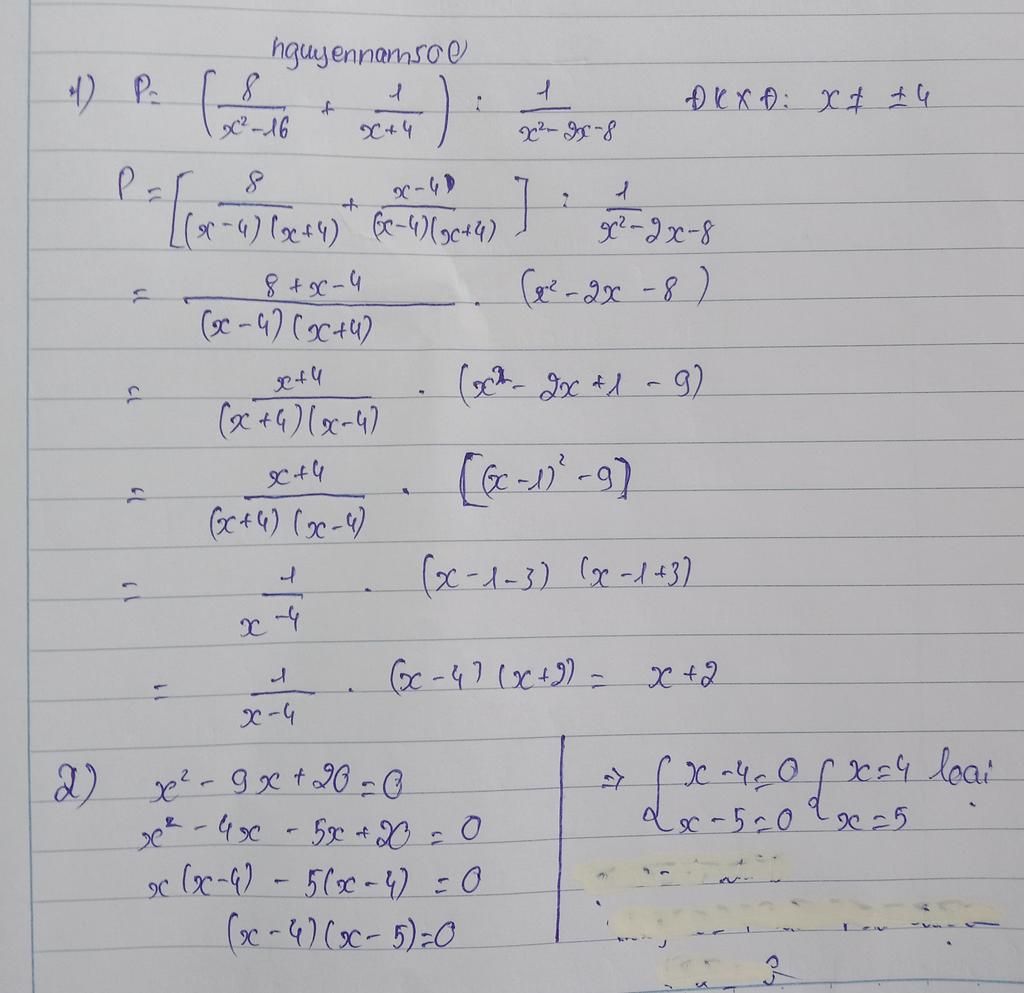 nguyennam500
1) P = (8/(x²-16) + 1/(x+4)) : 1/(x²-2x-8) ĐKXĐ: x ≠ ±4
P = [8/((x-4)(x+4)) + (x-4)/((x-4)(x+4))] : 1/(x²-2x-8)
= (8+x-4)/((x-4)(x+4)) . (x²-2x-8)
= (x+4)/((x+4)(x-4)) . (x²-2x+1-9)
= (x+4)/((x+4)(x-4)) . [(x-1)²-9]
= 1/(x-4) . (x-1-3) (x-1+3)
= 1/(x-4) . (x-4)(x+2) = x+2
2) x²-9x+20=0
x²-4x-5x+20=0
x(x-4)-5(x-4)=0
(x-4)(x-5)=0
=> { x-4=0 { x=4 loại
x-5=0 x=5